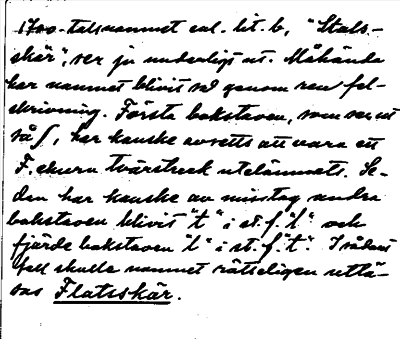 1700-talsnamnet enl. lit. b, "Stals-
skär", ser ju underligt ut. Måhända
har namnet blivit så genom ren fel-
skrivning. Första bokstaven, som ser ut
så ʃ, har kanske avsetts att vara ett
F, ehuru tvärstreck utelämnats. Se-
dan har kanske av misstag andra
bokstaven blivit "t" i st. f. "l" och
fjärde bokstaven "l" i st. f. "t". I sådant
fall skulle namnet rätteligen utlä-
sas Flatsskär.